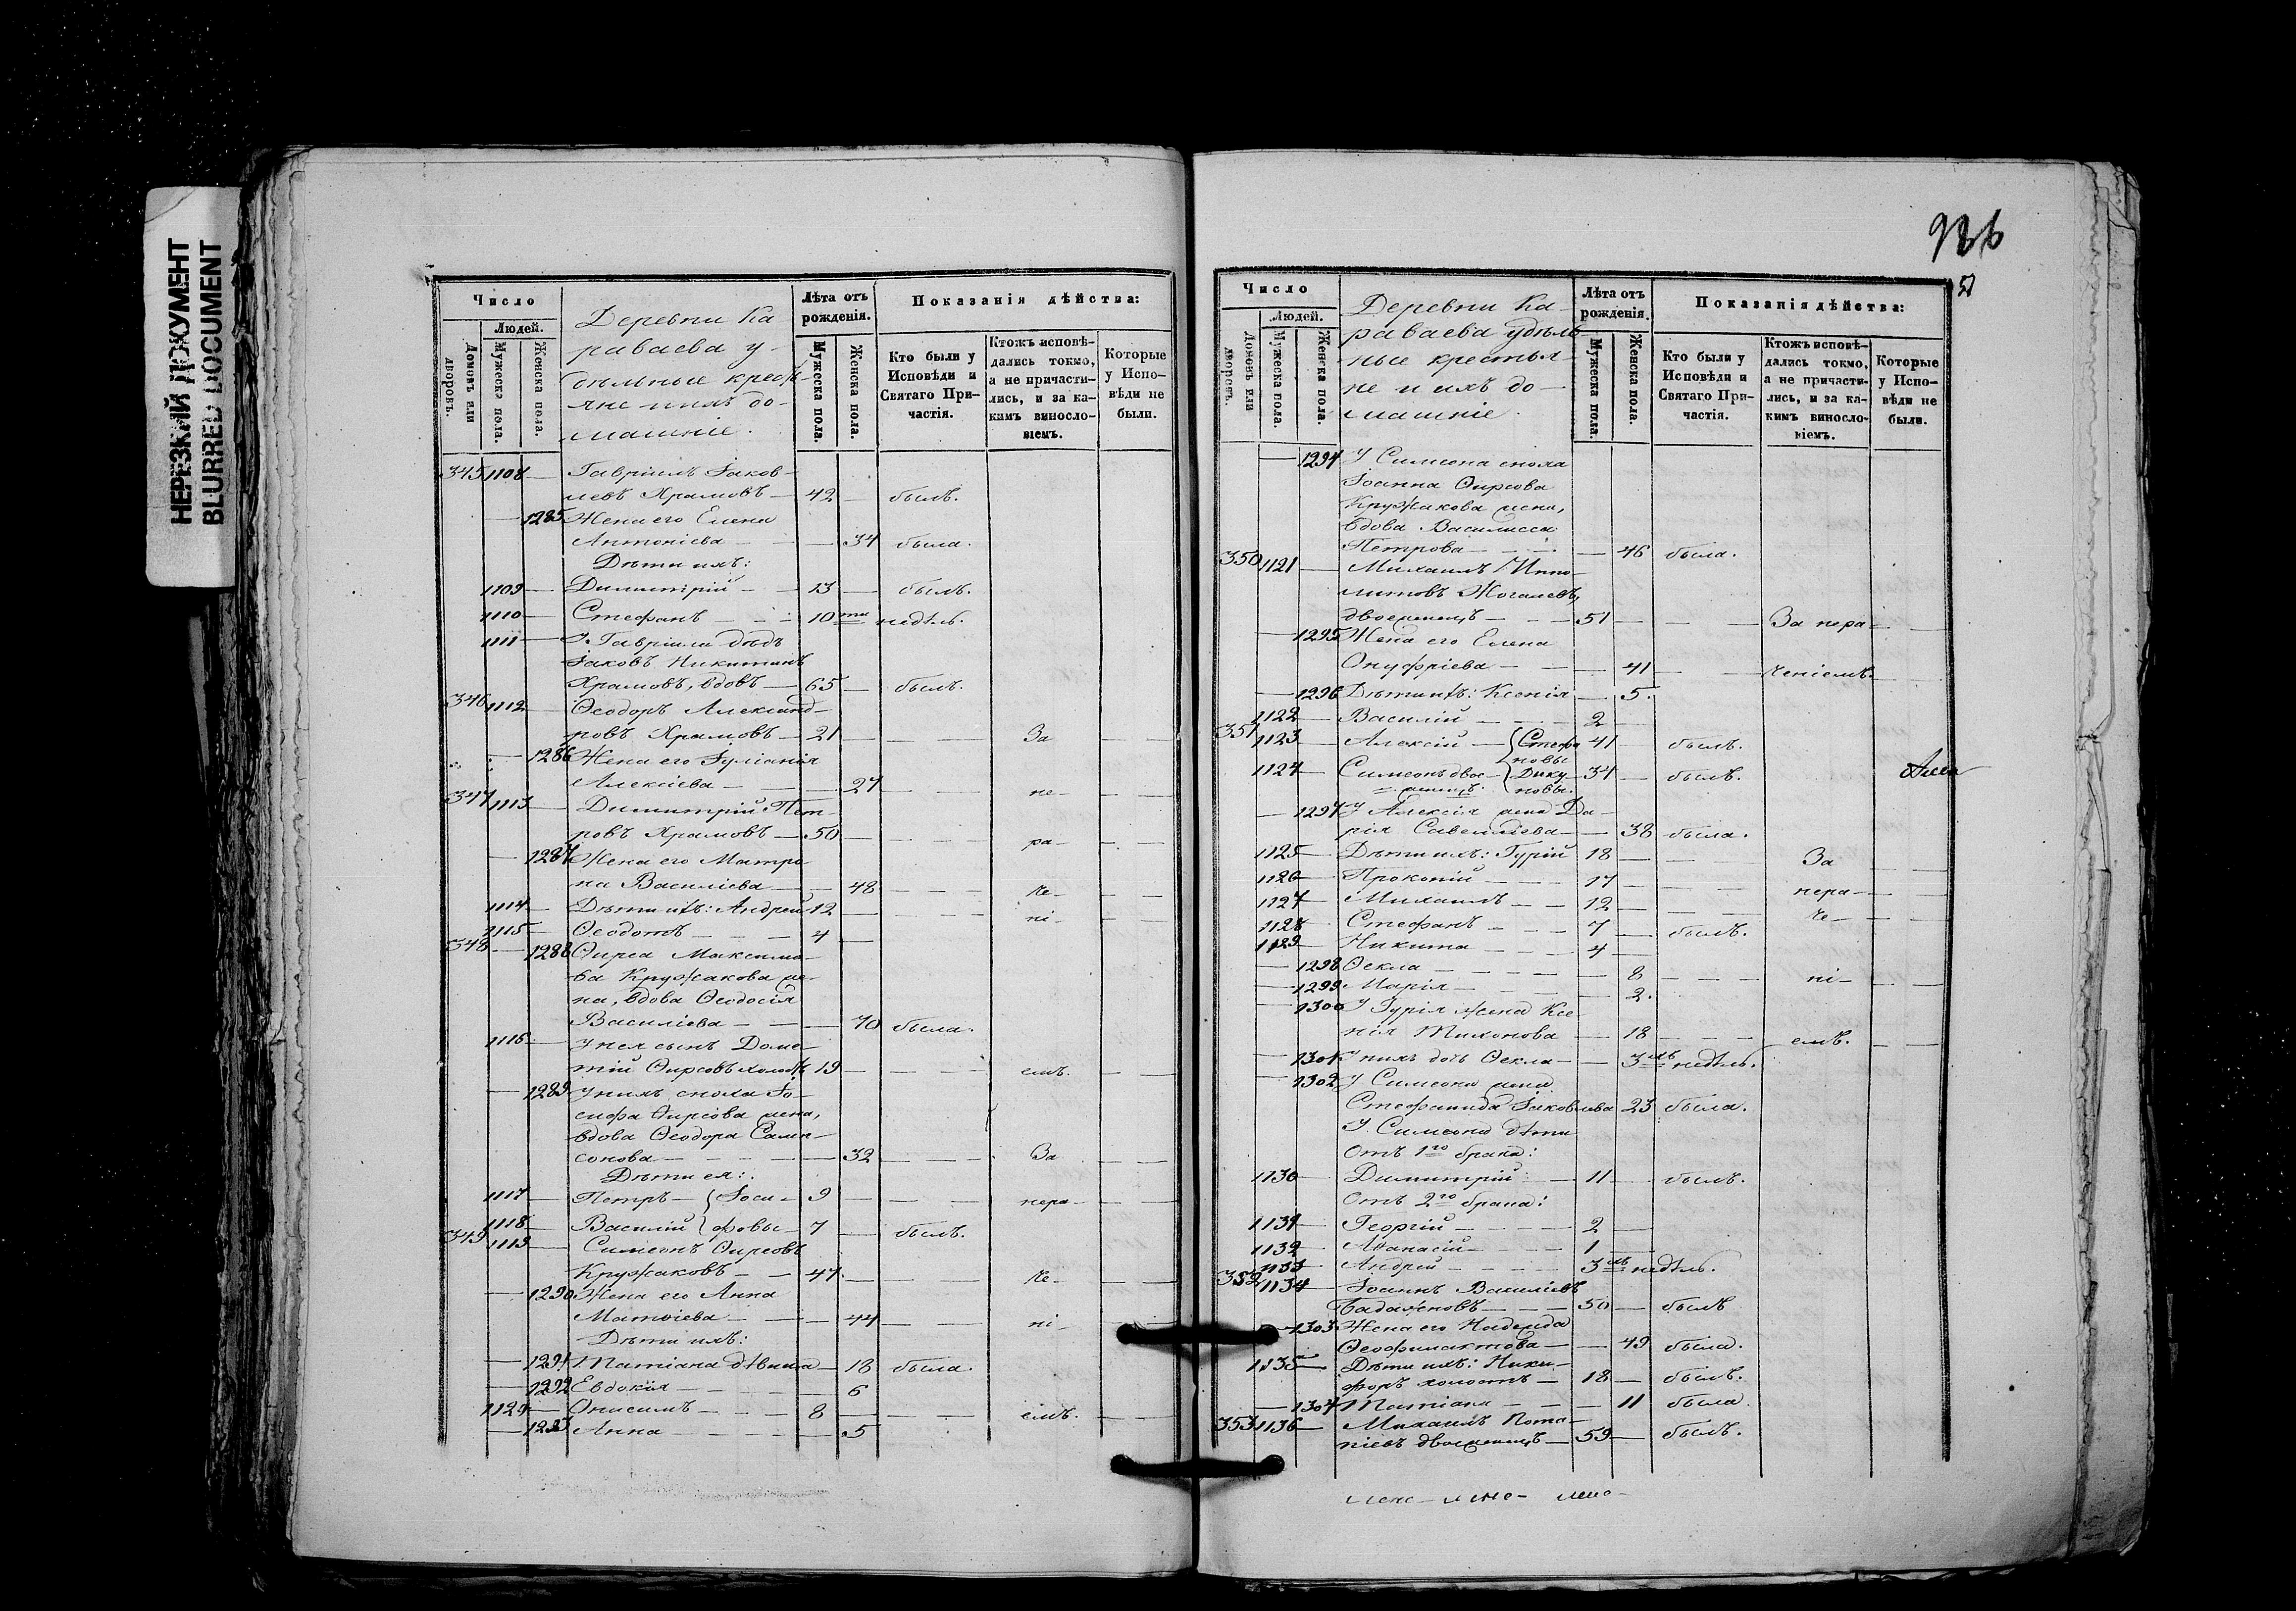 НЕРЕЗКИЙ ДОКУМЕНТ
BLURRED DOCUMENT
Число
Людей.
Домовъ или дворовъ.
Мужеска пола.
Женска пола.
Деревни Ка
раваева у-
дѣльные крестья-
яне и ихъ до-
машніе.
Лѣта отъ рожденія.
Мужеска пола.
Женска пола.
Показанія дѣйства:
Кто были у Исповѣди и Святаго При-частія.
Ктожъ исповѣ-дались токмо, а не причасти-лись, и за ка-кимъ винослo-віемъ.
Которые у Испо-вѣди не были.
345 1108 — Гавріилъ Іаков-
левъ Храмовъ — 42 — былъ.
— 1285 Жена его Елена
Антоніева — — 34 была.
Дѣти ихъ:
1109 — Димитрій — 13 — былъ.
1110 — Стефанъ — 10ти недѣль.
1111 — У Гавріила дѣдъ
Іаковъ Никитинъ
Храмовъ, вдовъ — 65 — былъ.
346 1112 — Ѳеодоръ Александ-
ровъ Храмовъ — 21 — — За — —
— 1286 Жена его Іуліанія
Алексіева — — 27 — — не — —
347 1113 — Димитрій Пет-
ровъ Храмовъ — 50 — — ра — —
— 1287 Жена его Матро
на Василіева — — 48 — — че — —
1114 — Дѣти ихъ: Андрей 12 — — ні — —
1115 — Ѳеодотъ — 4 —
348 — 1288 Ѳирса Максимо-
ва Кружакова же-
на, вдова Ѳеодосія
Василіева — — 70 была.
1116 — У нея сынъ Доме-
тій Ѳирсовъ холостъ 19 — — емъ. — —
— 1289 У нихъ сноха Іо-
сифа Ѳирсова жена,
вдова Ѳеодора Самп-
сонова — — 32 — — За — —
Дѣти ея:
1117 — Петръ — Іоси- 9 — — нера — —
1118 — Василій фовы — 7 — былъ.
349 1119 — Симеонъ Ѳирсовъ
Кружаковъ — 47 — — че — —
— 1290 Жена его Анна
Матѳіева — — 44 — — ні — —
Дѣти ихъ:
— 1291 Татіана дѣвица — 18 была.
— 1292 Евдокія — — 6
1120 — Онисимъ — 8 — — емъ. — —
— 1293 Анна — — 5
936
Число
Людей.
Домовъ или дворовъ.
Мужеска пола.
Женска пола.
Деревни Ка-
раваева удѣль
ные крестья-
не и ихъ до-
машніе.
Лѣта отъ рожденія.
Мужеска пола.
Женска пола.
Показанія дѣйства:
Кто были у Исповѣди и Святаго При-частія.
Ктожъ исповѣ-дались токмо, а не причасти-лись, и за ка-кимъ винослo-віемъ.
Которые у Испо-вѣди не были.
— 1294 У Симеона сноха
Іоанна Ѳирсова
Кружакова жена,
вдова Василисса
Петрова — — 46 была.
350 1121 — Михаилъ Иппо-
литовъ Жогалевъ,
двоеженецъ — 51 — — За нера — —
— 1295 Жена его Елена
Онуфріева — — 41 — — ченіемъ. —
— 1296 Дѣти ихъ: Ксенія — 5.
1122 — Василій — 2 —
351 1123 — Алексій — Стефа 41 — былъ.
новы
1124 — Симеонъ двое- Дику 34 — былъ.
женецъ. новы.
— 1297 У Алексія жена Да-
рія Савелліева — — 38 была.
1125 — Дѣти ихъ: Гурій 18 — — За —
1126 — Прокопій — 17 — — нера — —
1127 — Михаилъ — 12 — — че — —
1128 — Стефанъ — 7 — былъ.
1129 — Никита — 4 —
— 1298 Ѳекла — — 8 — — ні — —
— 1299 Марія — — 2.
— 1300 У Гурія жена Ксе-
нія Тихонова — 18 — — емъ. — —
— 1301 У нихъ дочь Ѳекла — — 3хъ недѣль.
— 1302 У Симеона жена
Стефанида Іаковлева 23 была.
У Симеона дѣти
Отъ 1го брака:
1130 — Димитрій — 11 — былъ.
Отъ 2го брака:
1131 — Георгій — 2 —
1132 — Аѳанасій — 1 —
1133 — Андрей — 3хъ недѣль.
352 1134 — Іоаннъ Василіевъ
Бадажковъ — 50 — былъ
— 1303 Жена его Надежда
Ѳеофилактова — — 49 была.
1135 — Дѣти ихъ: Ники-
форъ холостъ — 18 — былъ.
— 1304 Татіана — — 11 была
353 1136 — Михаилъ Пота-
піевъ двоеженецъ — 59 — былъ.